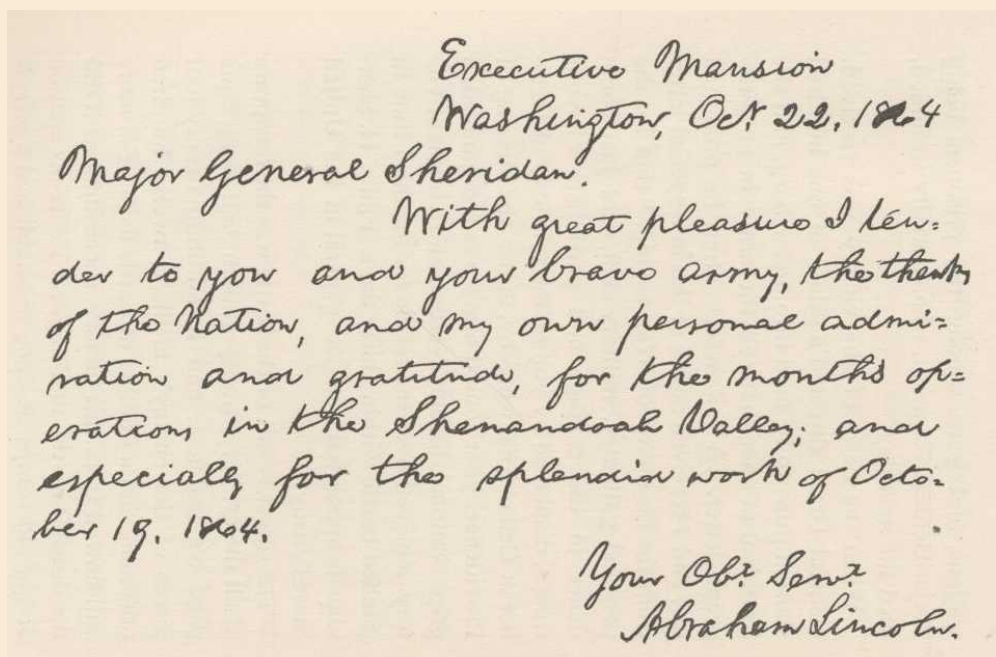 Executive Mansion
Washington, Oct. 22, 1864
Major General Sheridan.
With great pleasure I ten=
der to you and your brave army, the thanks
of the Nation, and my own personal admi=
ration and gratitude, for the month's op=
erations in the Shenandoah Valley; and
especially for the splendid work of Octo=
ber 19, 1864.
Your Obt. Servt.
Abraham Lincoln.